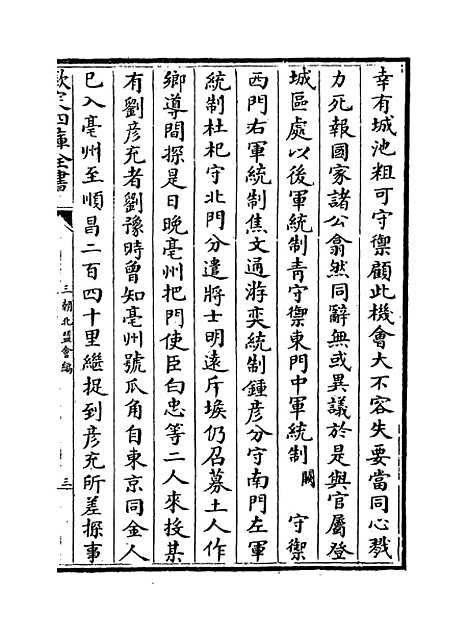 幸有城池粗可守禦顧此機會大不容失要當同心戮
力死報國家諸公翕然同辭無或異議於是與官屬登
城區處以後軍統制青守禦東門中軍統制闕守禦
西門右軍統制焦文通游奕統制鍾彦分守南門左軍
統制杜杞守北門分遣將士明遠斥堠仍召募土人作
鄉導間探是日晚亳州把門使臣白忠等二人來投某
有劉彦充者劉豫時曾知亳州號瓜角自東京同金人
已入亳州至順昌二百四十里繼捉到彦充所差探事
欽定四庫全書
三朝北盟會編
三